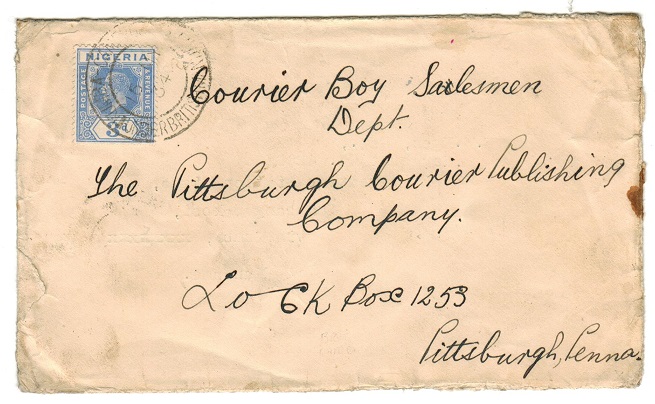 NIGERIA
POSTAGE
& REVENUE
3d
Courier Boy Salesmen
Dept.
The Pittsburgh Courier Publishing
Company.
Lock Box 1253
Pittsburgh, Penna.